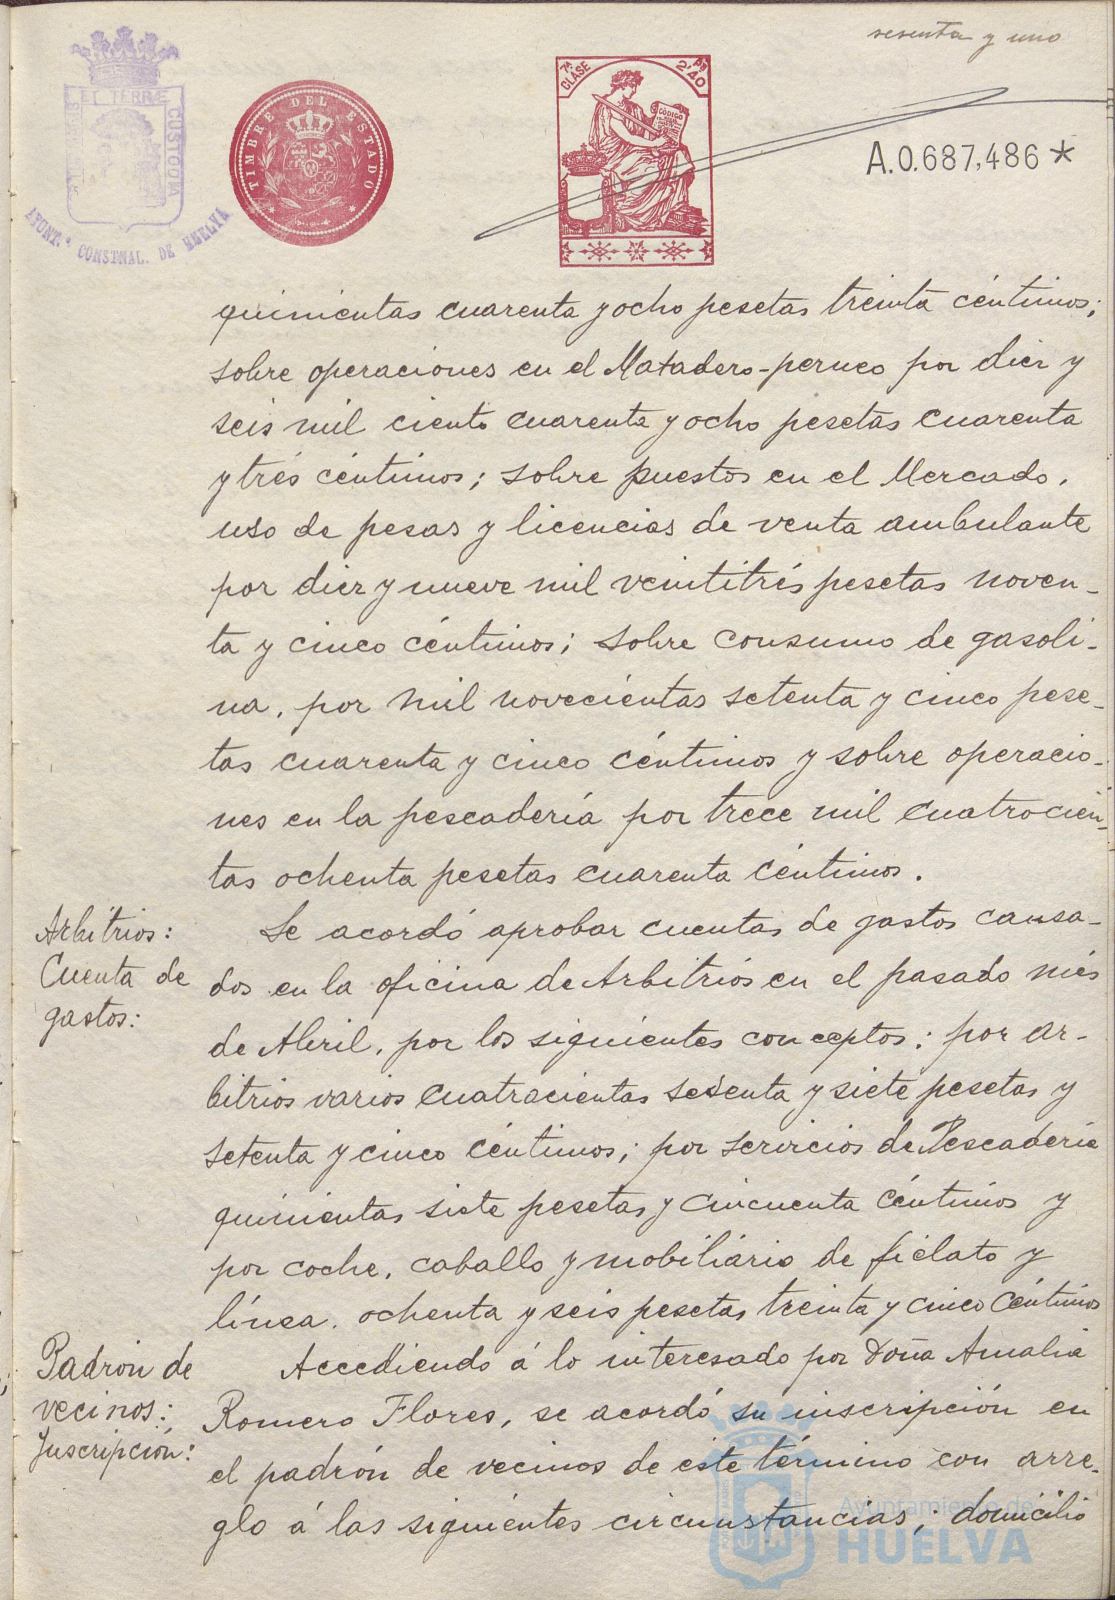 sesenta y uno
ET TERRÆ
CUSTODIA
AYUNT.º CONSTNAL. DE HUELVA
TIMBRE DEL ESTADO
7ª CLASE
2'40
CÓDIGO
A.0.687,486*
quinientas cuarenta y ocho pesetas treinta céntimos;
sobre operaciones en el Matadero-perneo por diez y
seis mil ciento cuarenta y ocho pesetas cuarenta
y trés céntimos; sobre puestos en el Mercado,
uso de pesas y licencias de venta ambulante
por diez y nueve mil veintitrés pesetas noven-
ta y cinco céntimos; sobre consumo de gasoli-
na, por mil novecientas setenta y cinco pese-
tas cuarenta y cinco céntimos y sobre operacio-
nes en la pescadería por trece mil cuatrocien-
tas ochenta pesetas cuarenta céntimos.
Arbitrios:
Cuenta de
gastos:
Se acordó aprobar cuentas de gastos causa-
dos en la oficina de Arbitrios en el pasado més
de Abril, por los siguientes conceptos: por ar-
bitrios varios cuatrocientas sesenta y siete pesetas y
setenta y cinco céntimos; por servicios de Pescadería
quinientas siete pesetas y cincuenta céntimos y
por coche, caballo y mobiliario de fielato y
línea, ochenta y seis pesetas treinta y cinco céntimos
Padrón de
vecinos:
Inscripción:
Accediendo á lo interesado por Doña Amalia
Romero Flores, se acordó su inscripción en
el padrón de vecinos de este término con arre-
glo á las siguientes circunstancias; domicilio
Ayuntamiento de
HUELVA